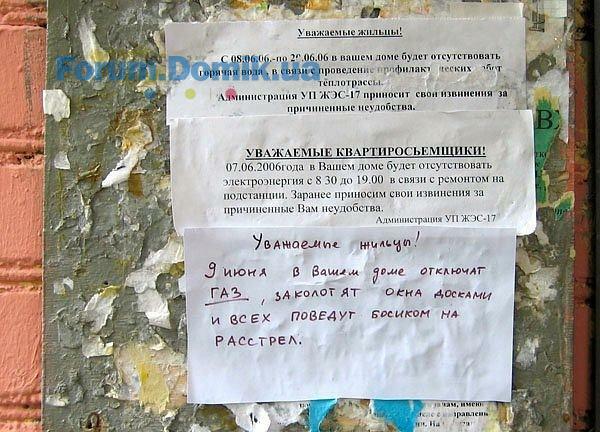 Уважаемые жильцы!
С 08.06.06.-по 20.06.06 в вашем доме будет отсутствовать
горячая вода , в связи с проведение профилактических работ
теплотрассы.
Администрация УП ЖЭС-17 приносит свои извинения за
причиненные неудобства.
Forum.Domik.ua
УВАЖАЕМЫЕ КВАРТИРОСЬЕМЩИКИ!
07.06.2006года в Вашем доме будет отсутствовать
электроэнергия с 8 30 до 19.00 в связи с ремонтом на
подстанции. Заранее приносим свои извинения за
причиненные Вам неудобства.
Администрация УП ЖЭС-17
Уважаемые жильцы!
9 июня в Вашем доме отключат
ГАЗ , заколотят окна досками
и всех поведут босиком на
расстрел.
В